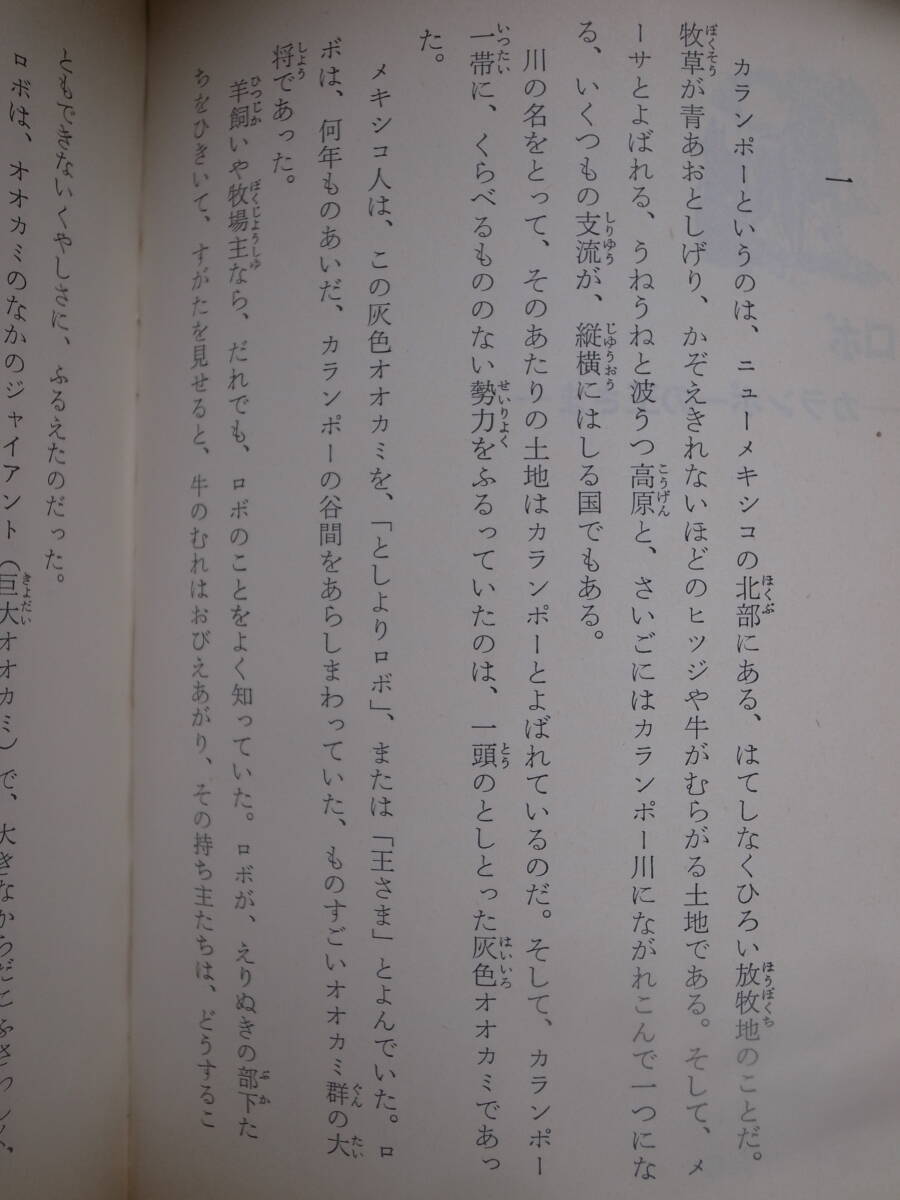 一
カランポーというのは、ニューメキシコの北部にある、はてしなくひろい放牧地のことだ。
牧草が青あおとしげり、かぞえきれないほどのヒツジや牛がむらがる土地である。そして、メ
ーサとよばれる、うねうねと波うつ高原と、さいごにはカランポー川にながれこんで一つにな
る、いくつもの支流が、縦横にはしる国でもある。
川の名をとって、そのあたりの土地はカランポーとよばれているのだ。そして、カランポー
一帯に、くらべるもののない勢力をふるっていたのは、一頭のとしとった灰色オオカミであっ
た。
メキシコ人は、この灰色オオカミを、「としよりロボ」、または「王さま」とよんでいた。ロ
ボは、何年ものあいだ、カランポーの谷間をあらしまわっていた、ものすごいオオカミ群の大
将であった。
羊飼いや牧場主なら、だれでも、ロボのことをよく知っていた。ロボが、えりぬきの部下た
ちをひきいて、すがたを見せると、牛のむれはおびえあがり、その持ち主たちは、どうするこ
ともできないくやしさに、ふるえたのだった。
ロボは、オオカミのなかのジャイアント（巨大オオカミ）で、大きなからだに